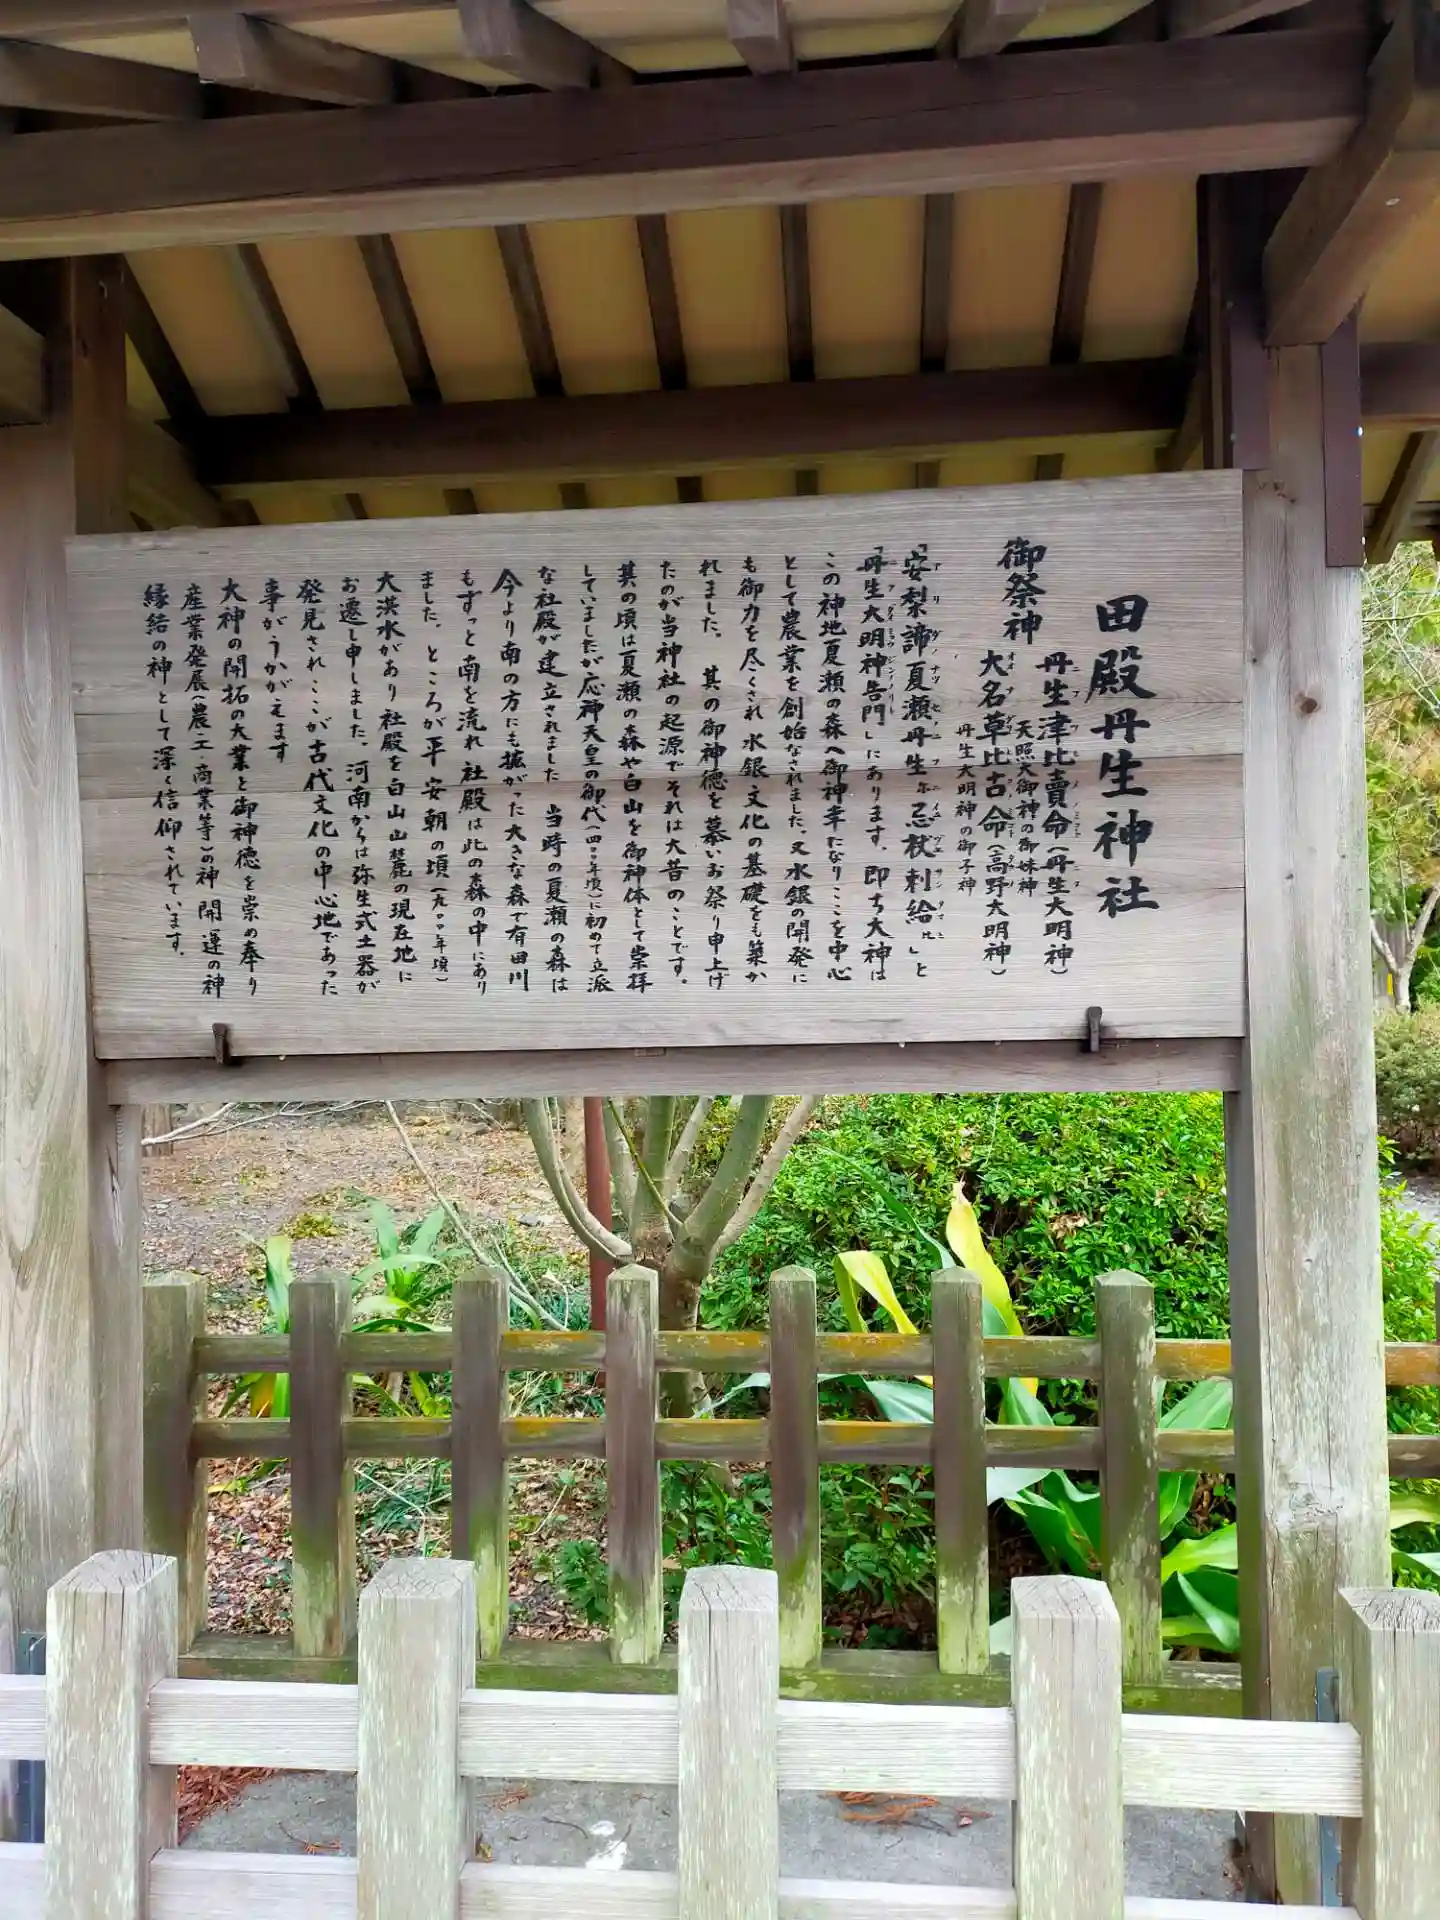 田殿丹生神社
御祭神
丹生津比賣命(丹生大明神)
天照大御神の御妹神
大名草比古命(高野大明神)
丹生大明神の御子神
「安梨諦夏瀬丹生尓忌杖刺給比」と
「丹生大明神告門」にあります。即ち大神は
この神地夏瀬の森へ御神幸になりここを中心
として農業を創始なされました。又水銀の開発に
も御力を尽くされ水銀文化の基礎をも築か
れました。 其の御神徳を慕いお祭り申上げ
たのが当神社の起源でそれは大昔のことです。
其の頃は夏瀬の森や白山を御神体として崇拝
していましたが応神天皇の御代(四〇〇年頃)に初めて立派
な社殿が建立されました 当時の夏瀬の森は
今より南の方にも拡がった大きな森で有田川
もずっと南を流れ社殿は此の森の中にあり
ました。ところが平安朝の頃(九〇〇年頃)
大洪水があり社殿を白山山麓の現在地に
お遷し申しました。河南からは弥生式土器が
発見されここが古代文化の中心地であった
事がうかがえます
大神の開拓の大業と御神徳を崇め奉り
産業発展(農・工・商業等)の神 開運の神
縁結の神として深く信仰されています。